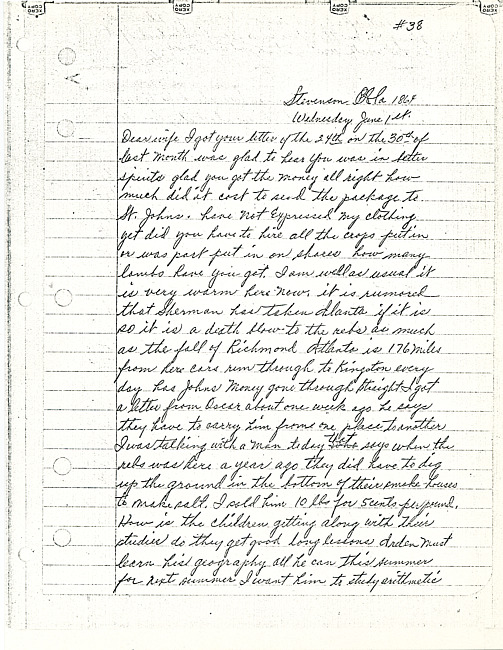 #38
Stevenson Ala 1864
Wednesday June 1st.
Dear wife I got your letter of the 24th on the 30th of
last month was glad to hear you was in better
spirits glad you got the money all right how
much did it cost to send the package to
St. Johns. have not Expressed my clothing
yet did you have to hire all the crops put in
or was part put in on shares how many
lambs have you got. I am well as usual it
is very warm here now. it is rumored
that Sherman has taken Atlanta if it is
so it is a death blow to the rebs as much
as the fall of Richmond Atlanta is 176 miles
from here cars run through to Kingston every
day has Johns money gone through straight I got
a letter from Oscar about one week ago he says
they have to carry him from one place to another
I was talking with a man today that says when the
rebs was here a year ago they did have to dig
up the ground in the bottom of their smoke houses
to make salt. I sold him 10 lbs for 5 cents per pound.
How is the children getting along with their
studies do they get good long lessons Arden must
learn his geography all he can this summer
for next summer I want him to study arithmetic